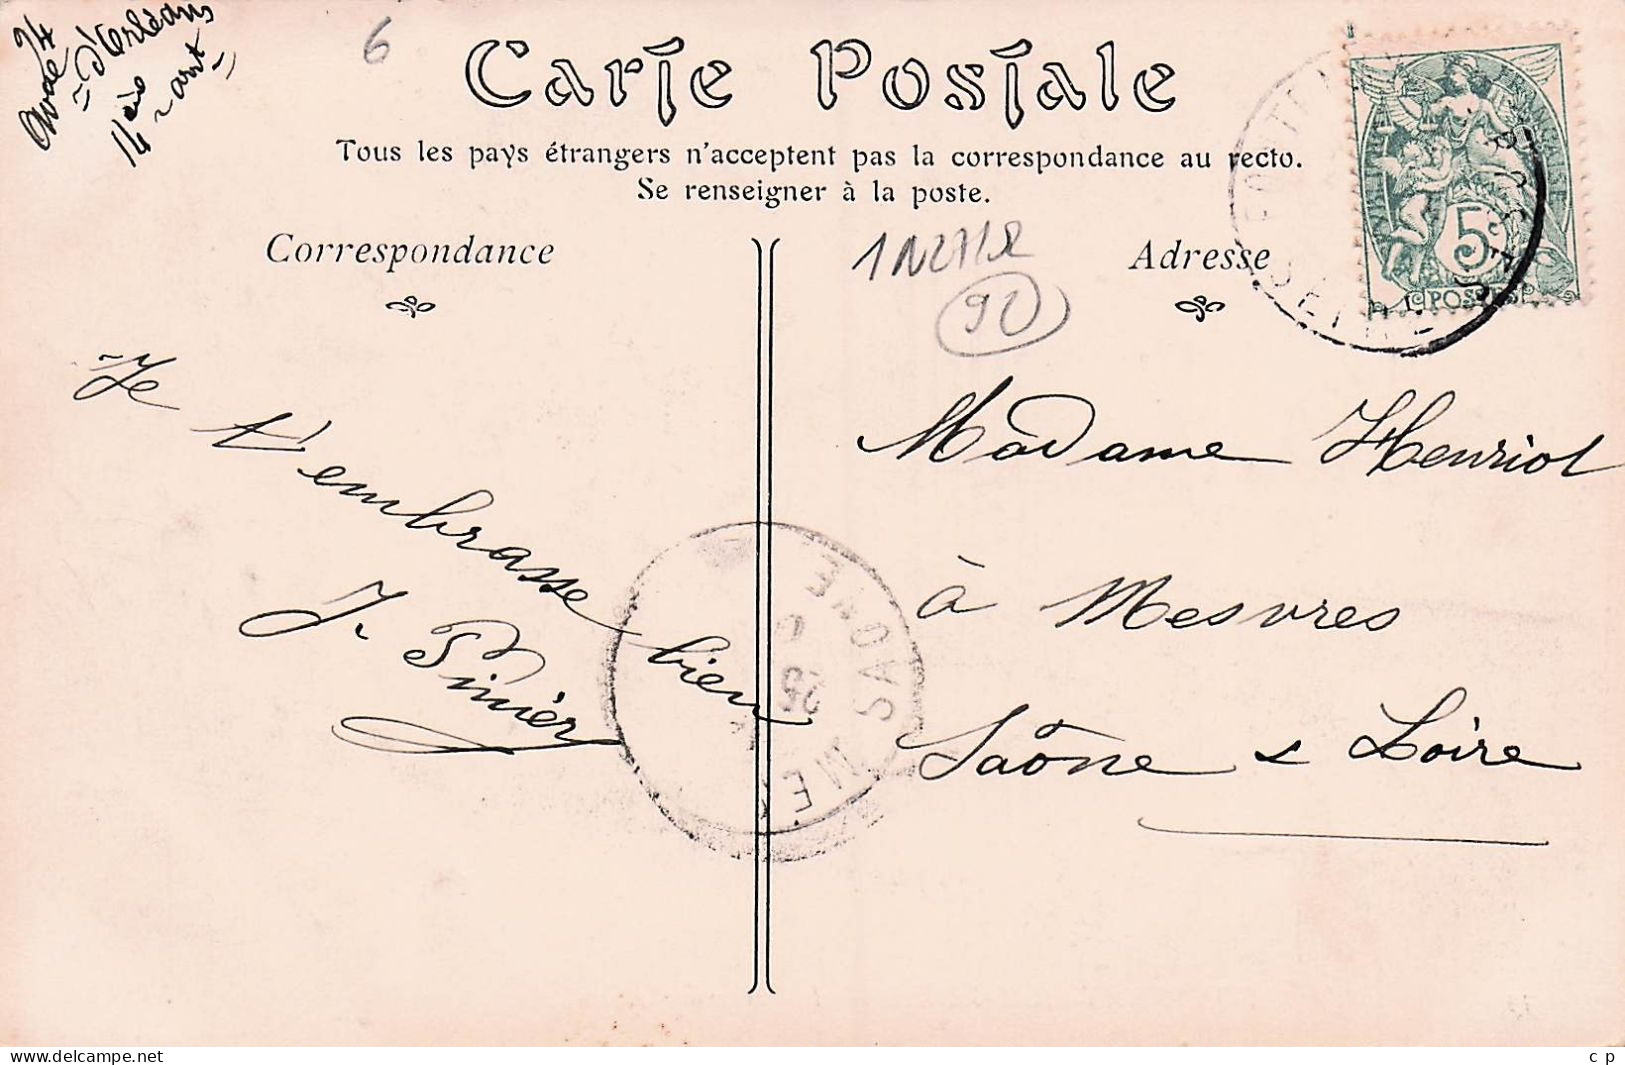 Avde 24
d'Orléans
14 arrt
6
Carte Postale
Tous les pays étrangers n'acceptent pas la correspondance au recto.
Se renseigner à la poste.
Correspondance
Adresse
92
RÉPUBLIQUE FRANÇAISE
5c
POSTES
SEINE
Je t'embrasse bien
J.
Madame Henriot
à Mesvres
Saône & Loire
SAONE
25
www.delcampe.net
c p